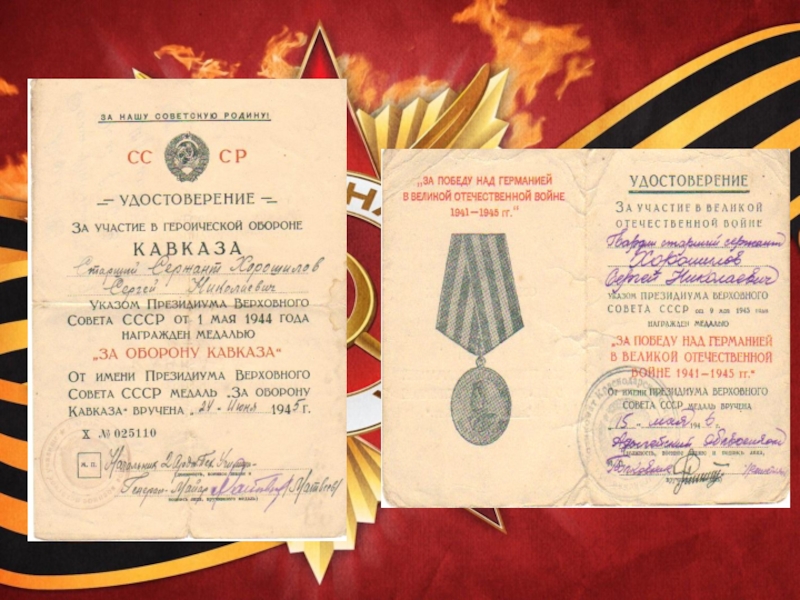 ЗА НАШУ СОВЕТСКУЮ РОДИНУ!
СС СР
УДОСТОВЕРЕНИЕ
ЗА УЧАСТИЕ В ГЕРОИЧЕСКОЙ ОБОРОНЕ
КАВКАЗА
Старший Сержант Хорошилов
Сергей Николаевич
УКАЗОМ ПРЕЗИДИУМА ВЕРХОВНОГО
СОВЕТА СССР ОТ 1 МАЯ 1944 ГОДА
НАГРАЖДЕН МЕДАЛЬЮ
„ЗА ОБОРОНУ КАВКАЗА“
ОТ ИМЕНИ ПРЕЗИДИУМА ВЕРХОВНОГО
СОВЕТА СССР МЕДАЛЬ „ЗА ОБОРОНУ
КАВКАЗА“ ВРУЧЕНА „24“ Июня 1945 г.
X № 025110
М. П.
Начальник 2
Генерал-Майор
„ЗА ПОБЕДУ НАД ГЕРМАНИЕЙ
В ВЕЛИКОЙ ОТЕЧЕСТВЕННОЙ ВОЙНЕ
1941—1945 гг.“
УДОСТОВЕРЕНИЕ
ЗА УЧАСТИЕ В ВЕЛИКОЙ
ОТЕЧЕСТВЕННОЙ ВОЙНЕ
старший сержант
Хорошилов
Сергей Николаевич
УКАЗОМ ПРЕЗИДИУМА ВЕРХОВНОГО
СОВЕТА СССР от 9 мая 1945 года
НАГРАЖДЕН МЕДАЛЬЮ
„ЗА ПОБЕДУ НАД ГЕРМАНИЕЙ
В ВЕЛИКОЙ ОТЕЧЕСТВЕННОЙ
ВОЙНЕ 1941—1945 гг.“
ОТ ИМЕНИ ПРЕЗИДИУМА ВЕРХОВНОГО
СОВЕТА СССР МЕДАЛЬ ВРУЧЕНА
„15“ мая 1946 г.